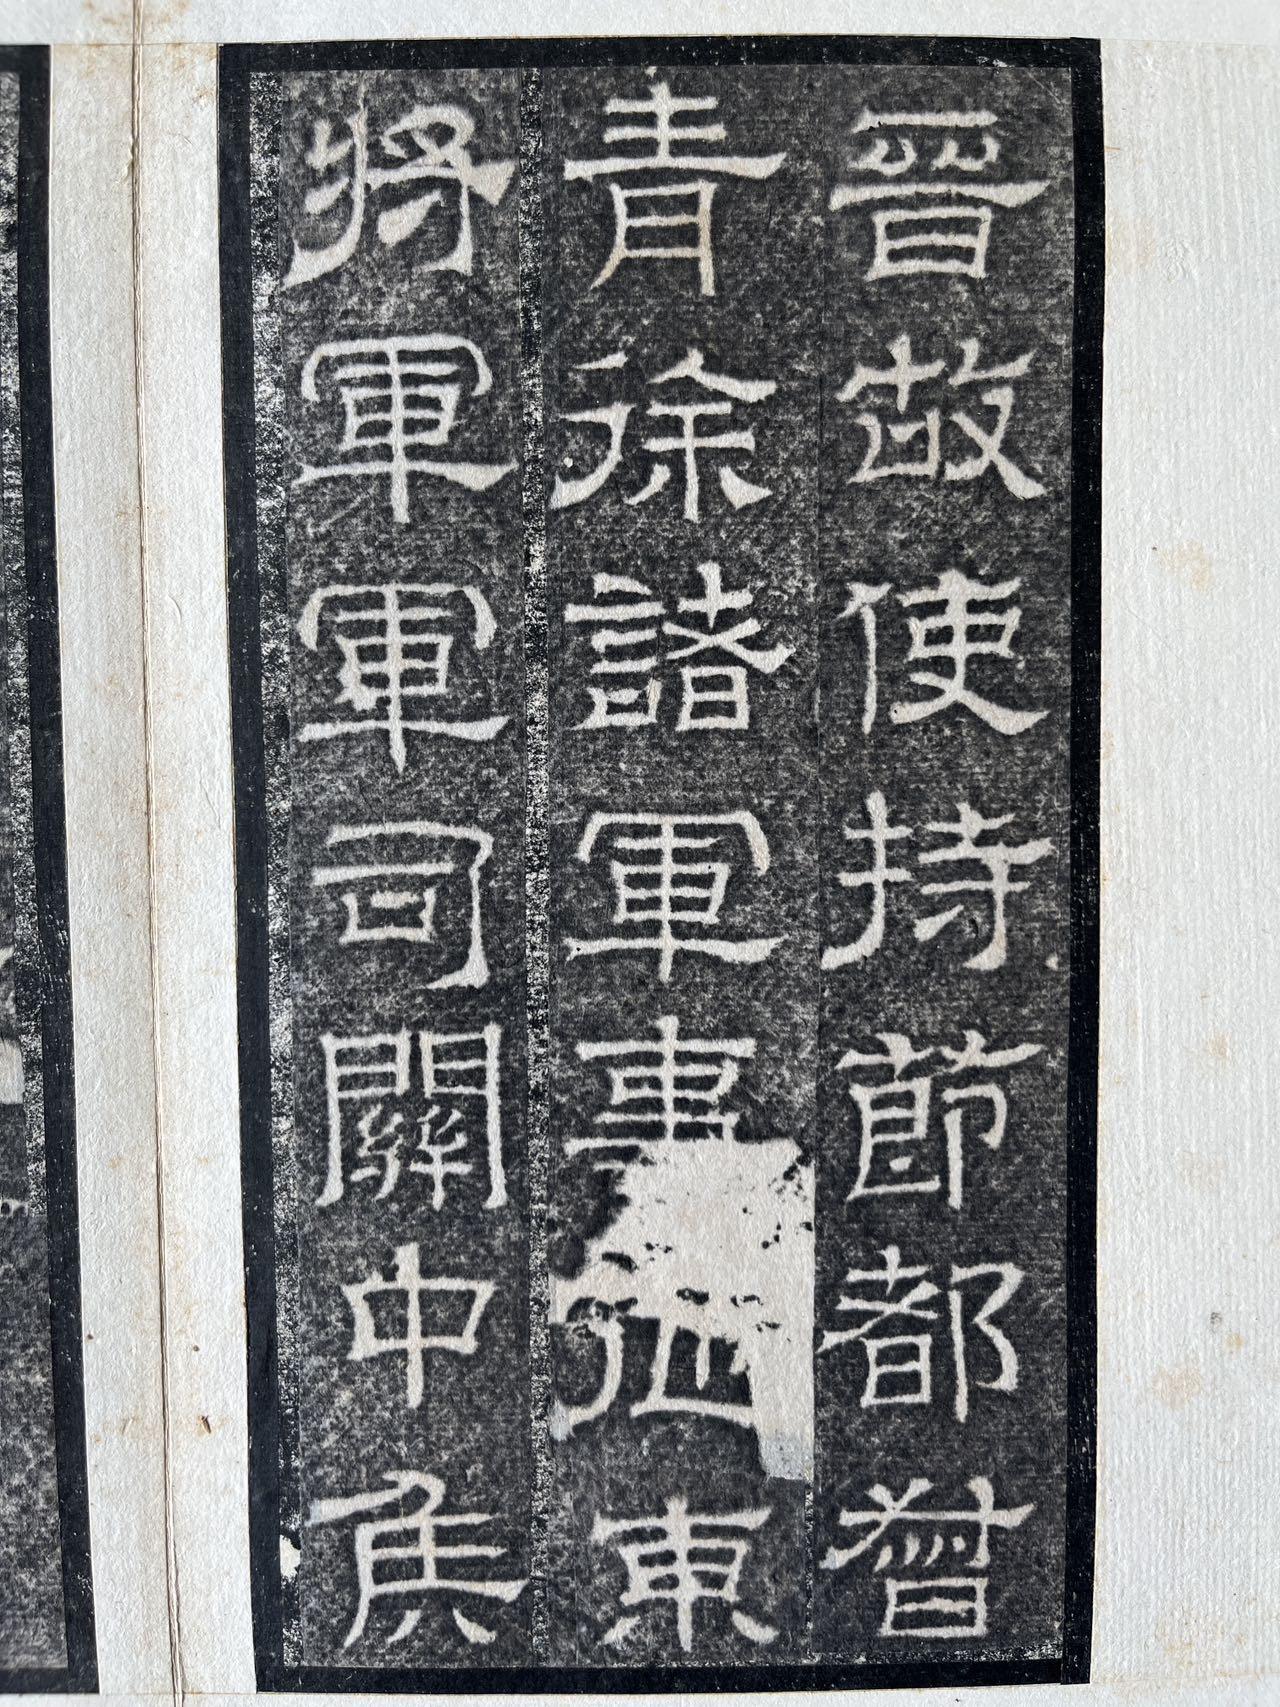 晉故使持節都督
青徐諸軍事征東
將軍軍司關中侯